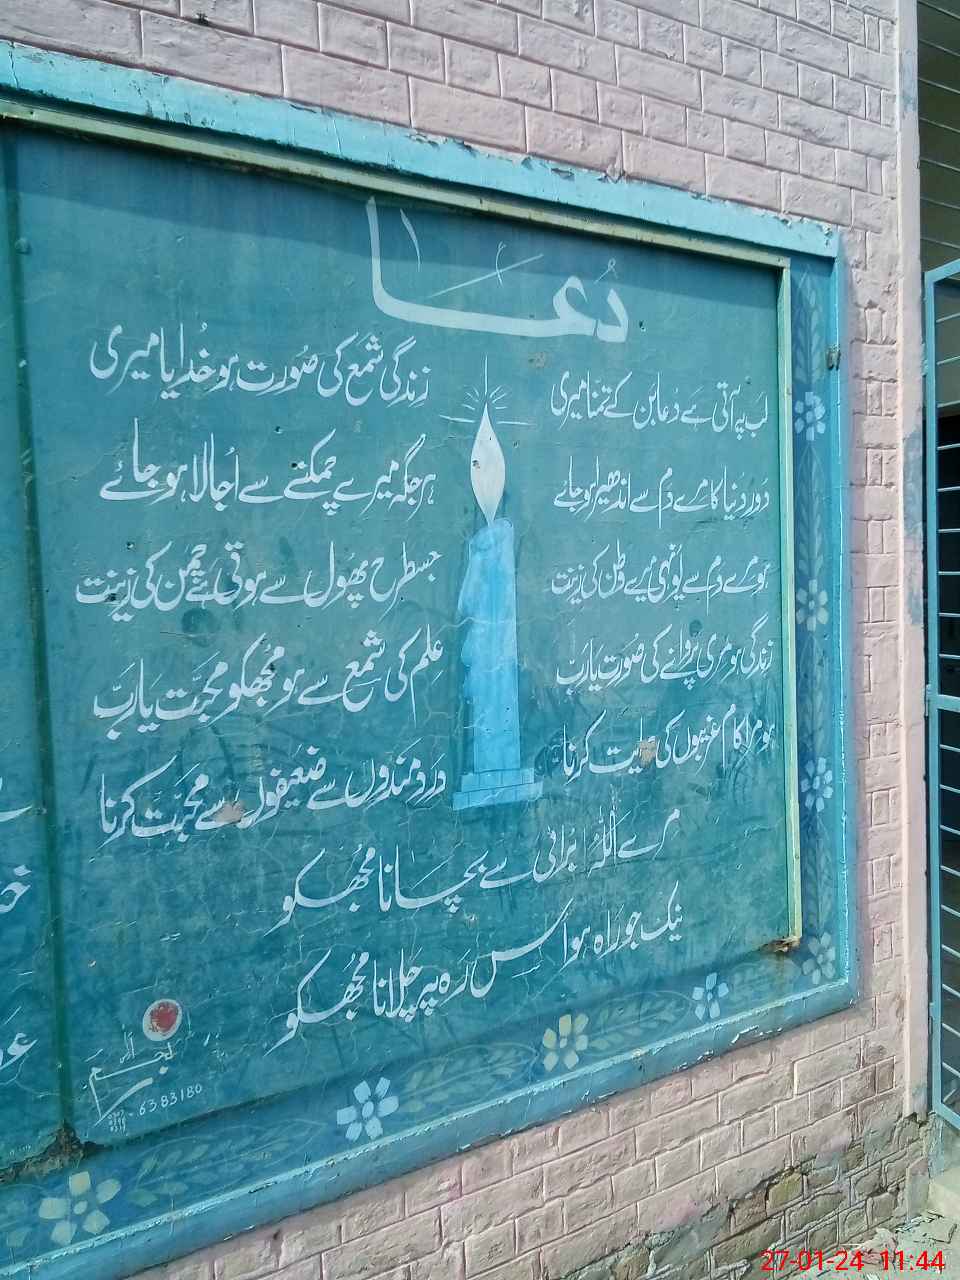 دُعا
لب پہ آتی ہے دعا بن کے تمنا میری
زندگی شمع کی صُورت ہو خُدایا میری
دُور دُنیا کا مرے دم سے اندھیرا ہو جائے
ہر جگہ میرے چمکنے سے اُجالا ہو جائے
ہو مرے دم سے یُونہی میرے وطن کی زینت
جسطرح پھُول سے ہوتی ہے چمن کی زینت
زندگی ہو مری پروانے کی صُورت یارب
عِلم کی شمع سے ہو مُجھکو محبّت یارب
ہو مرا کام غریبوں کی حمایت کرنا
دردمندوں سے ضعیفوں سے محبّت کرنا
مرے اللّٰہ بُرائی سے بچانا مُجھکو
نیک جو راہ ہو اس رہ پہ چلانا مُجھکو
6383180
27-01-24 11:44